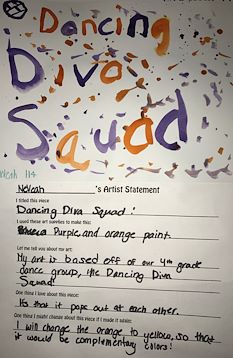 Dancing
Diva
Squad
114
's Artist Statement
I titled this piece
Dancing Diva Squad!
I used these art supplies to make this:
Purple, and orange paint.
Let me tell you about my art:
My art is based off of our 4th grade
dance group, the Dancing Diva
Squad!
One thing I love about this piece:
Its that it pops out at each other.
One thing I might change about this piece if I made it again:
I will change the orange to yellow, so that
it would be complementary colors!